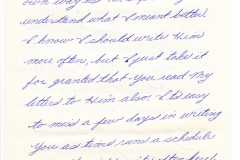 own way as
understand what I meant better.
I know I should write Him
more often, but I just take it
for granted that You read My
letters to Him also. It's easy
to miss a few days in writing
You as time runs a schedule